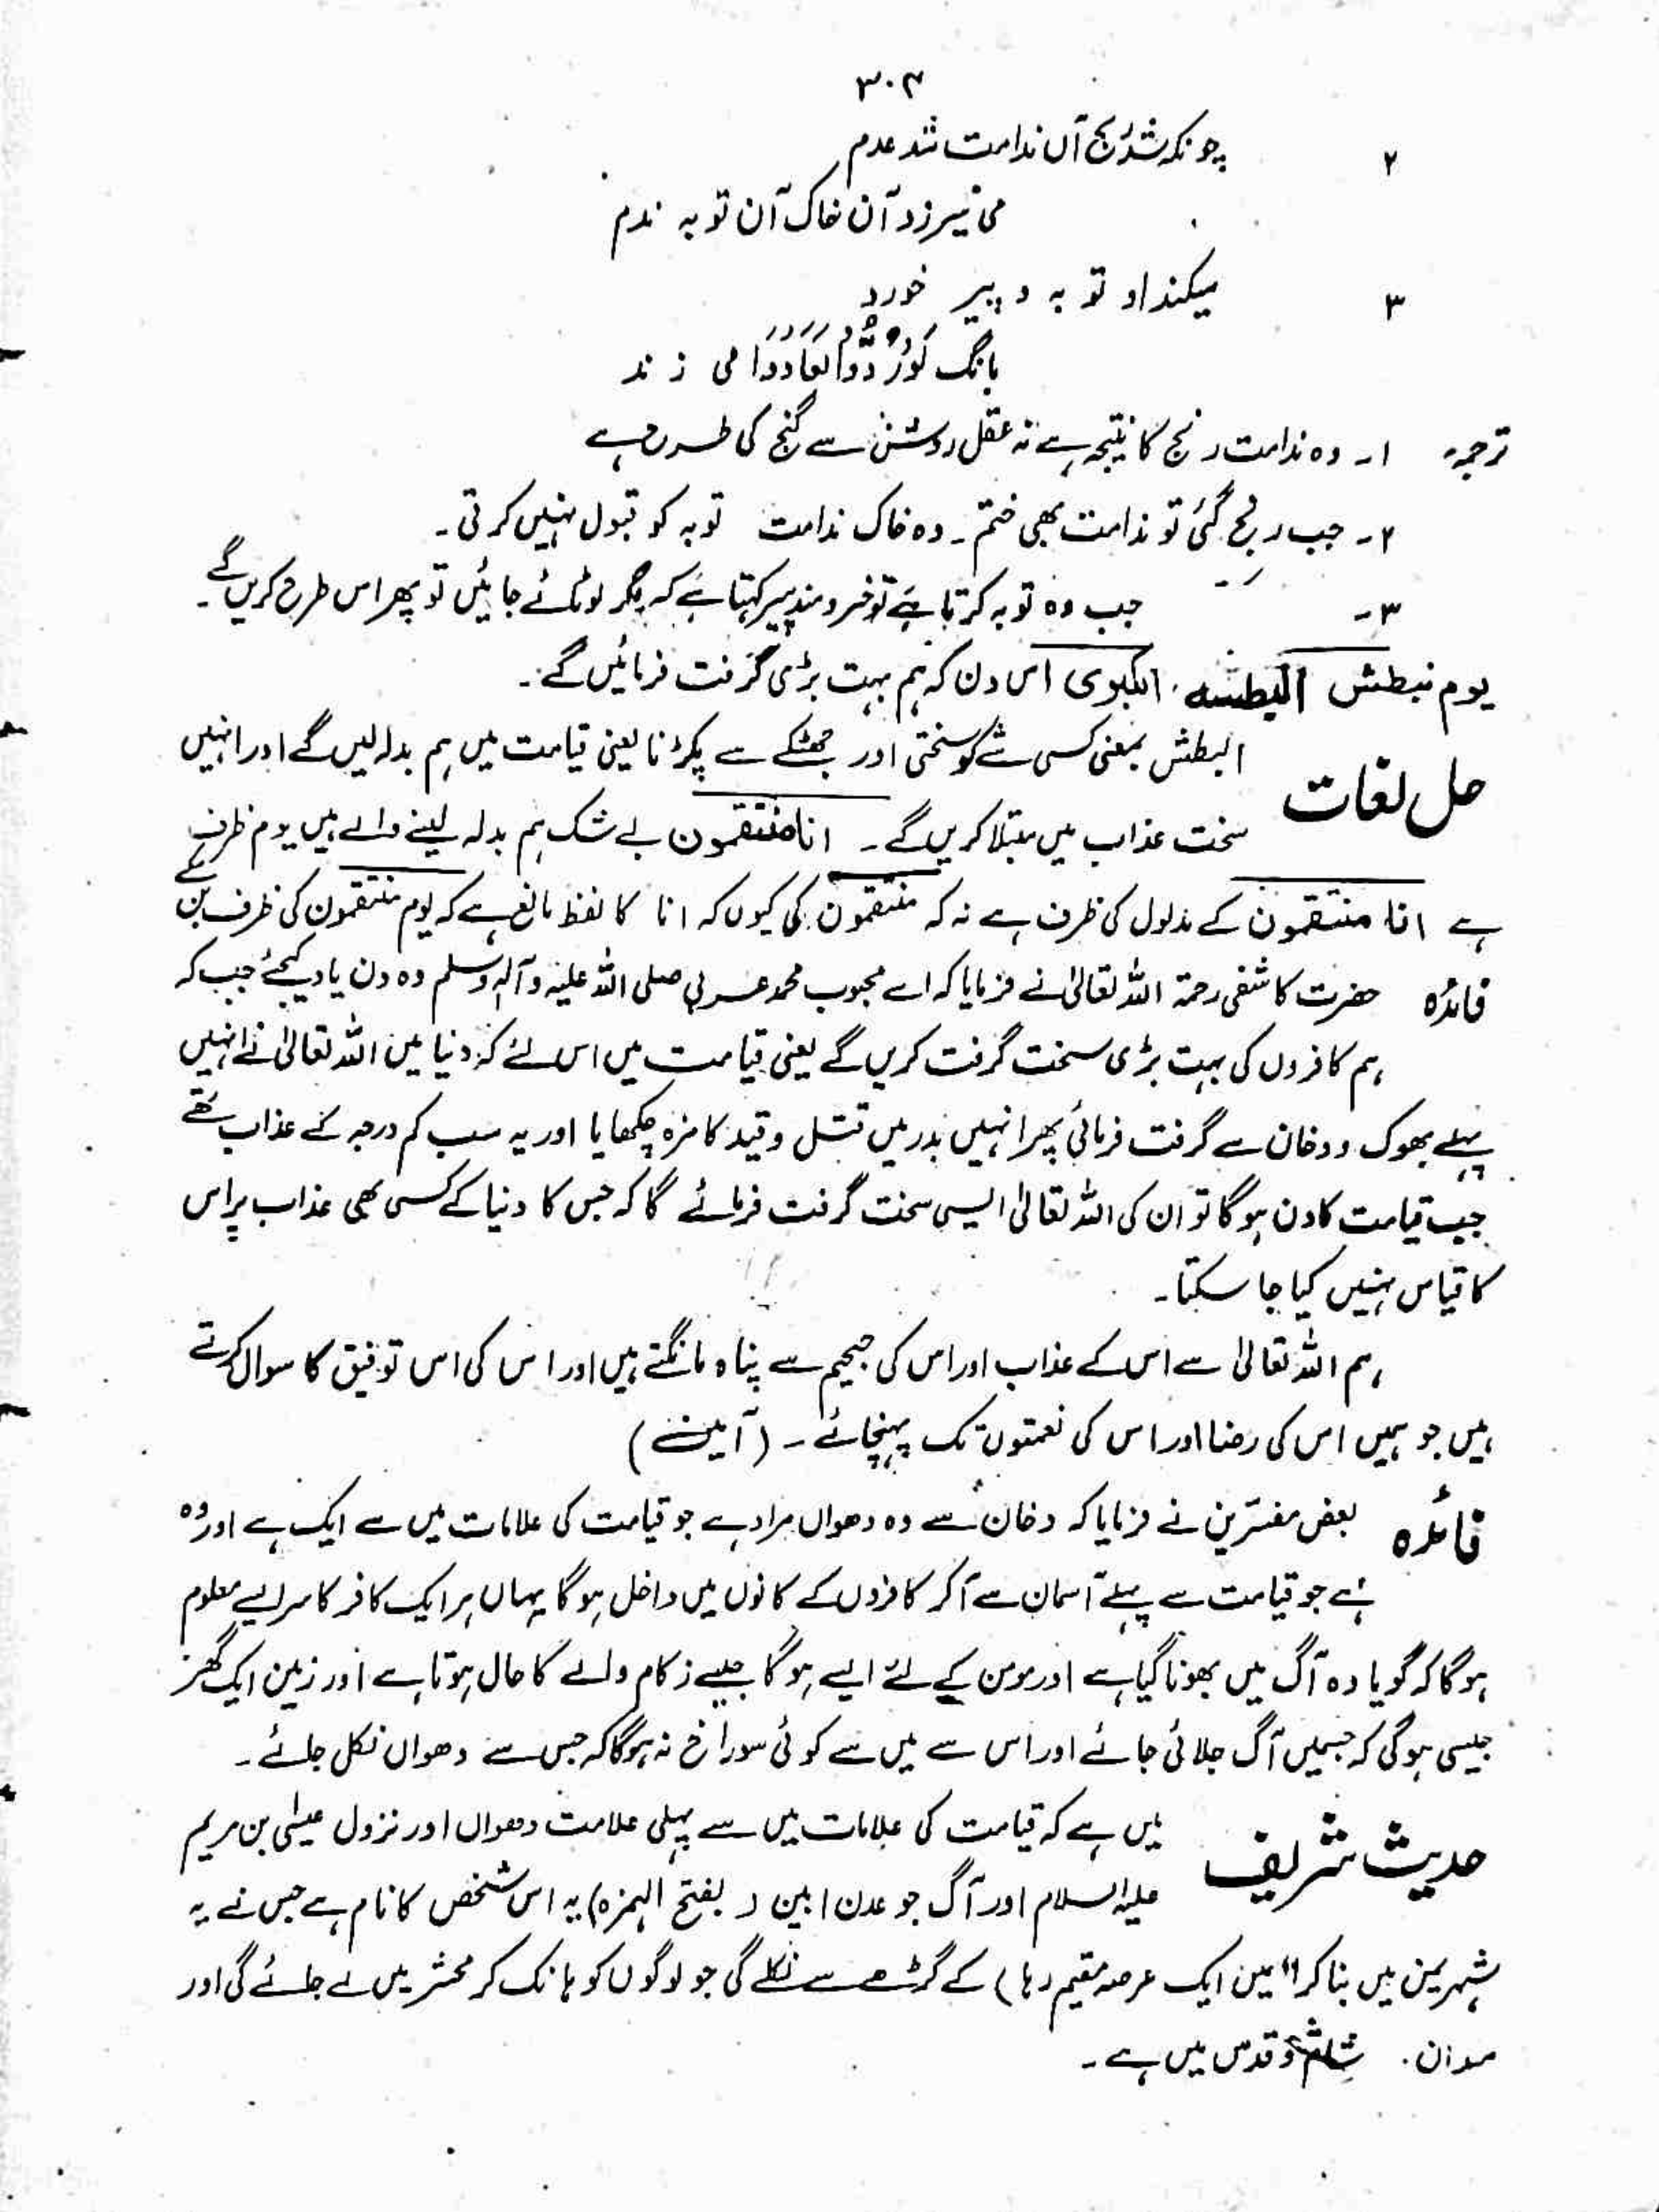 ۳۰۴
۲ چونکہ شد رنج آں ندامت شد عدم
می نیرزد آن خاک آن توبہ ندم
۳ میکند او توبہ و پیر خورد
بانگ لَوْ رُدُّوا لَعَادُوْا می زند
ترجمہ ۱۔ وہ ندامت رنج کا نتیجہ ہے نہ عقل روشن سے گنج کی طرح ہے
۲۔ جب رنج گئی تو ندامت بھی ختم۔ وہ خاک ندامت توبہ کو قبول نہیں کرتی۔
۳۔ جب وہ توبہ کرتا ہے تو خرد مند پیر کہتا ہے کہ اگر لوٹائے جائیں تو پھر اس طرح کریں گے۔
یوم نبطش البطشہ الکبری اس دن کہ ہم بہت بڑی گرفت فرمائیں گے۔
حل لغات البطش بمعنی کسی شے کو سختی اور جھٹکے سے پکڑنا یعنی قیامت میں ہم بدلہ لیں گے اور انہیں
سخت عذاب میں مبتلا کریں گے۔ انا منتقمون بے شک ہم بدلہ لینے والے ہیں یوم ظرف
ہے انا منتقمون کے مدلول کی ظرف ہے نہ کہ منتقمون کی کیوں کہ انا کا لفظ مانع ہے کہ یوم منتقمون کی ظرف بن سکے
فائدہ حضرت کاشفی رحمۃ اللہ تعالیٰ نے فرمایا کہ اے محبوب محمد عربی صلی اللہ علیہ وآلہ وسلم وہ دن یاد کیجئے جب کہ
ہم کافروں کی بہت بڑی سخت گرفت کریں گے یعنی قیامت میں اس لئے کہ دنیا میں اللہ تعالیٰ نے انہیں
پہلے بھوک و دخان سے گرفت فرمائی پھر انہیں بدر میں قتل و قید کا مزہ چکھایا اور یہ سب کم درجہ کے عذاب تھے
جب قیامت کا دن ہوگا تو ان کی اللہ تعالیٰ ایسی سخت گرفت فرمائے گا کہ جس کا دنیا کے کسی بھی عذاب پر اس
کا قیاس نہیں کیا جا سکتا۔
ہم اللہ تعالیٰ سے اس کے عذاب اور اس کی جحیم سے پناہ مانگتے ہیں اور اس کی اس توفیق کا سوال کرتے
ہیں جو ہمیں اس کی رضا اور اس کی نعمتوں تک پہنچائے۔ (آمین)
فائدہ بعض مفسرین نے فرمایا کہ دخان سے وہ دھواں مراد ہے جو قیامت کی علامات میں سے ایک ہے اور وہ
ہے جو قیامت سے پہلے آسمان سے آکر کافروں کے کانوں میں داخل ہوگا یہاں ہر ایک کافر کا سر ایسے معلوم
ہوگا کہ گویا وہ آگ میں بھونا گیا ہے اور مومن کے لئے ایسے ہوگا جیسے زکام والے کا حال ہوتا ہے اور زمین ایک گھر
جیسی ہوگی کہ جسمیں آگ جلائی جائے اور اس سے میں سے کوئی سوراخ نہ ہوگا کہ جس سے دھواں نکل جائے۔
حدیث شریف میں ہے کہ قیامت کی علامات میں سے پہلی علامت دھواں اور نزول عیسیٰ بن مریم
علیہ السلام اور آگ جو عدن ابین (بفتح الہمزہ) یہ اس شخص کا نام ہے جس نے یہ
شہر یمن میں بنا کر اسمیں ایک عرصہ مقیم رہا) کے گڑھے سے نکلے گی جو لوگوں کو ہانک کر محشر میں لے جائے گی اور
قدس میں ہے۔